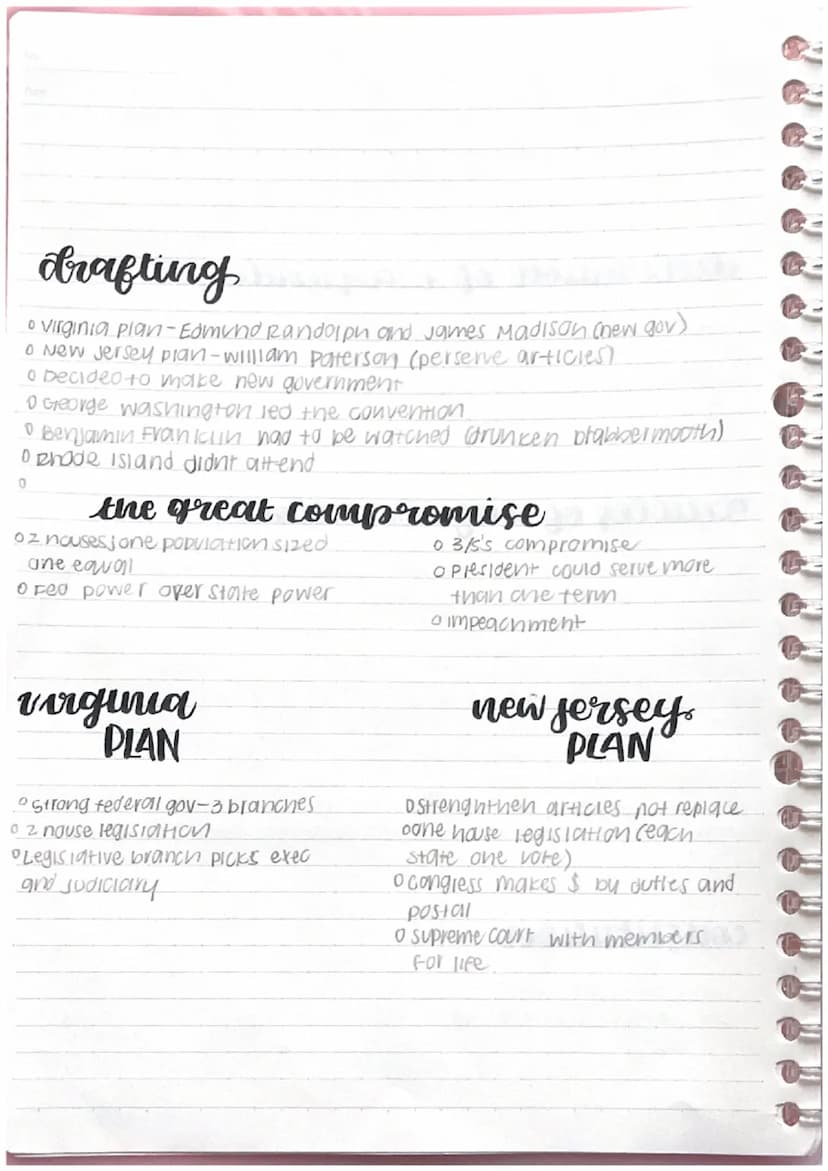 drafting
o Virginia Plan - Edmund Randolph and James Madison (new gov)
o New Jersey plan - William Paterson (perserve articles)
o Decided to make new government
o George Washington led the convention
o Benjamin Franklin had to be watched (drunken blabbermooth)
o Rhode Island didnt attend
o
the great compromise
o 2 houses, one population sized
one equall
o Fed power over state power
o 3/5's compromise
o President could serve more
than one term
o impeachment
virginia
PLAN
o Strong federal gov - 3 branches
o 2 house legislation
o Legislative branch picks exec
and judiciary
new jersey
PLAN
o Strenghthen articles not replace
o one house legislation (each
state one vote)
o congress makes $ by duties and
postal
o supreme court with members
for life